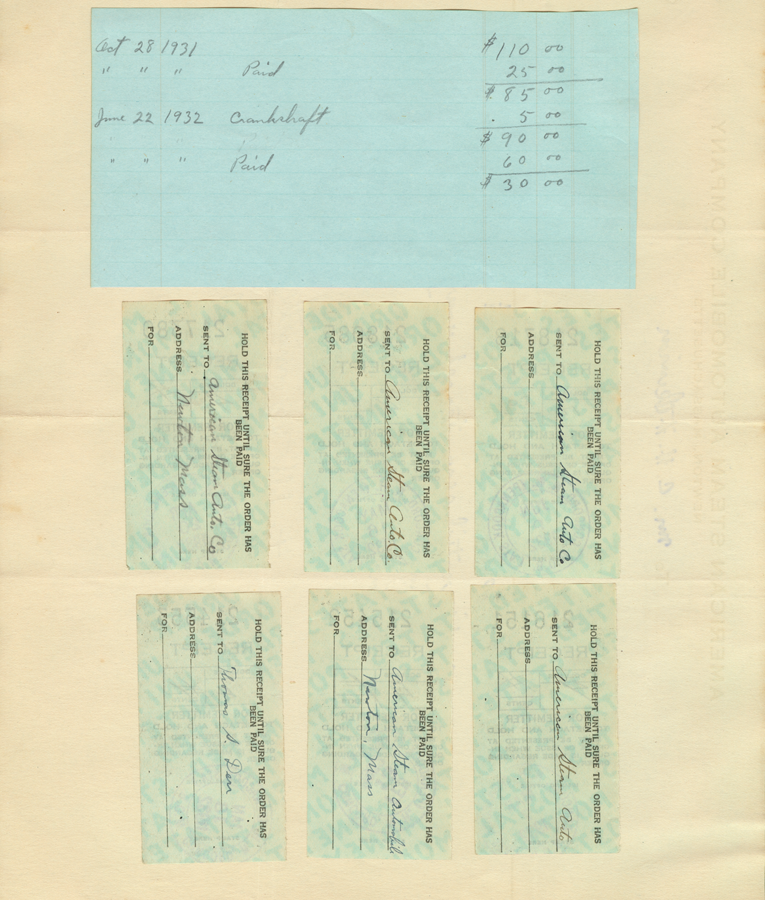 Oct 28 1931 $110 00
" " " Paid 25 00
$ 85 00
June 22 1932 Crankshaft . 5 00
$ 90 00
" " " Paid 60 00
$ 30 00
HOLD THIS RECEIPT UNTIL SURE THE ORDER HAS
BEEN PAID
SENT TO American Steam Auto. Co
ADDRESS Newton Mass
FOR
HOLD THIS RECEIPT UNTIL SURE THE ORDER HAS
BEEN PAID
SENT TO American Steam Auto Co.
ADDRESS
FOR
HOLD THIS RECEIPT UNTIL SURE THE ORDER HAS
BEEN PAID
SENT TO American Steam Auto Co
ADDRESS
FOR
HOLD THIS RECEIPT UNTIL SURE THE ORDER HAS
BEEN PAID
SENT TO Thomas S. Derr
ADDRESS
FOR
HOLD THIS RECEIPT UNTIL SURE THE ORDER HAS
BEEN PAID
SENT TO American Steam Automobile
ADDRESS Newton, Mass
FOR
HOLD THIS RECEIPT UNTIL SURE THE ORDER HAS
BEEN PAID
SENT TO American Steam Auto.
ADDRESS
FOR